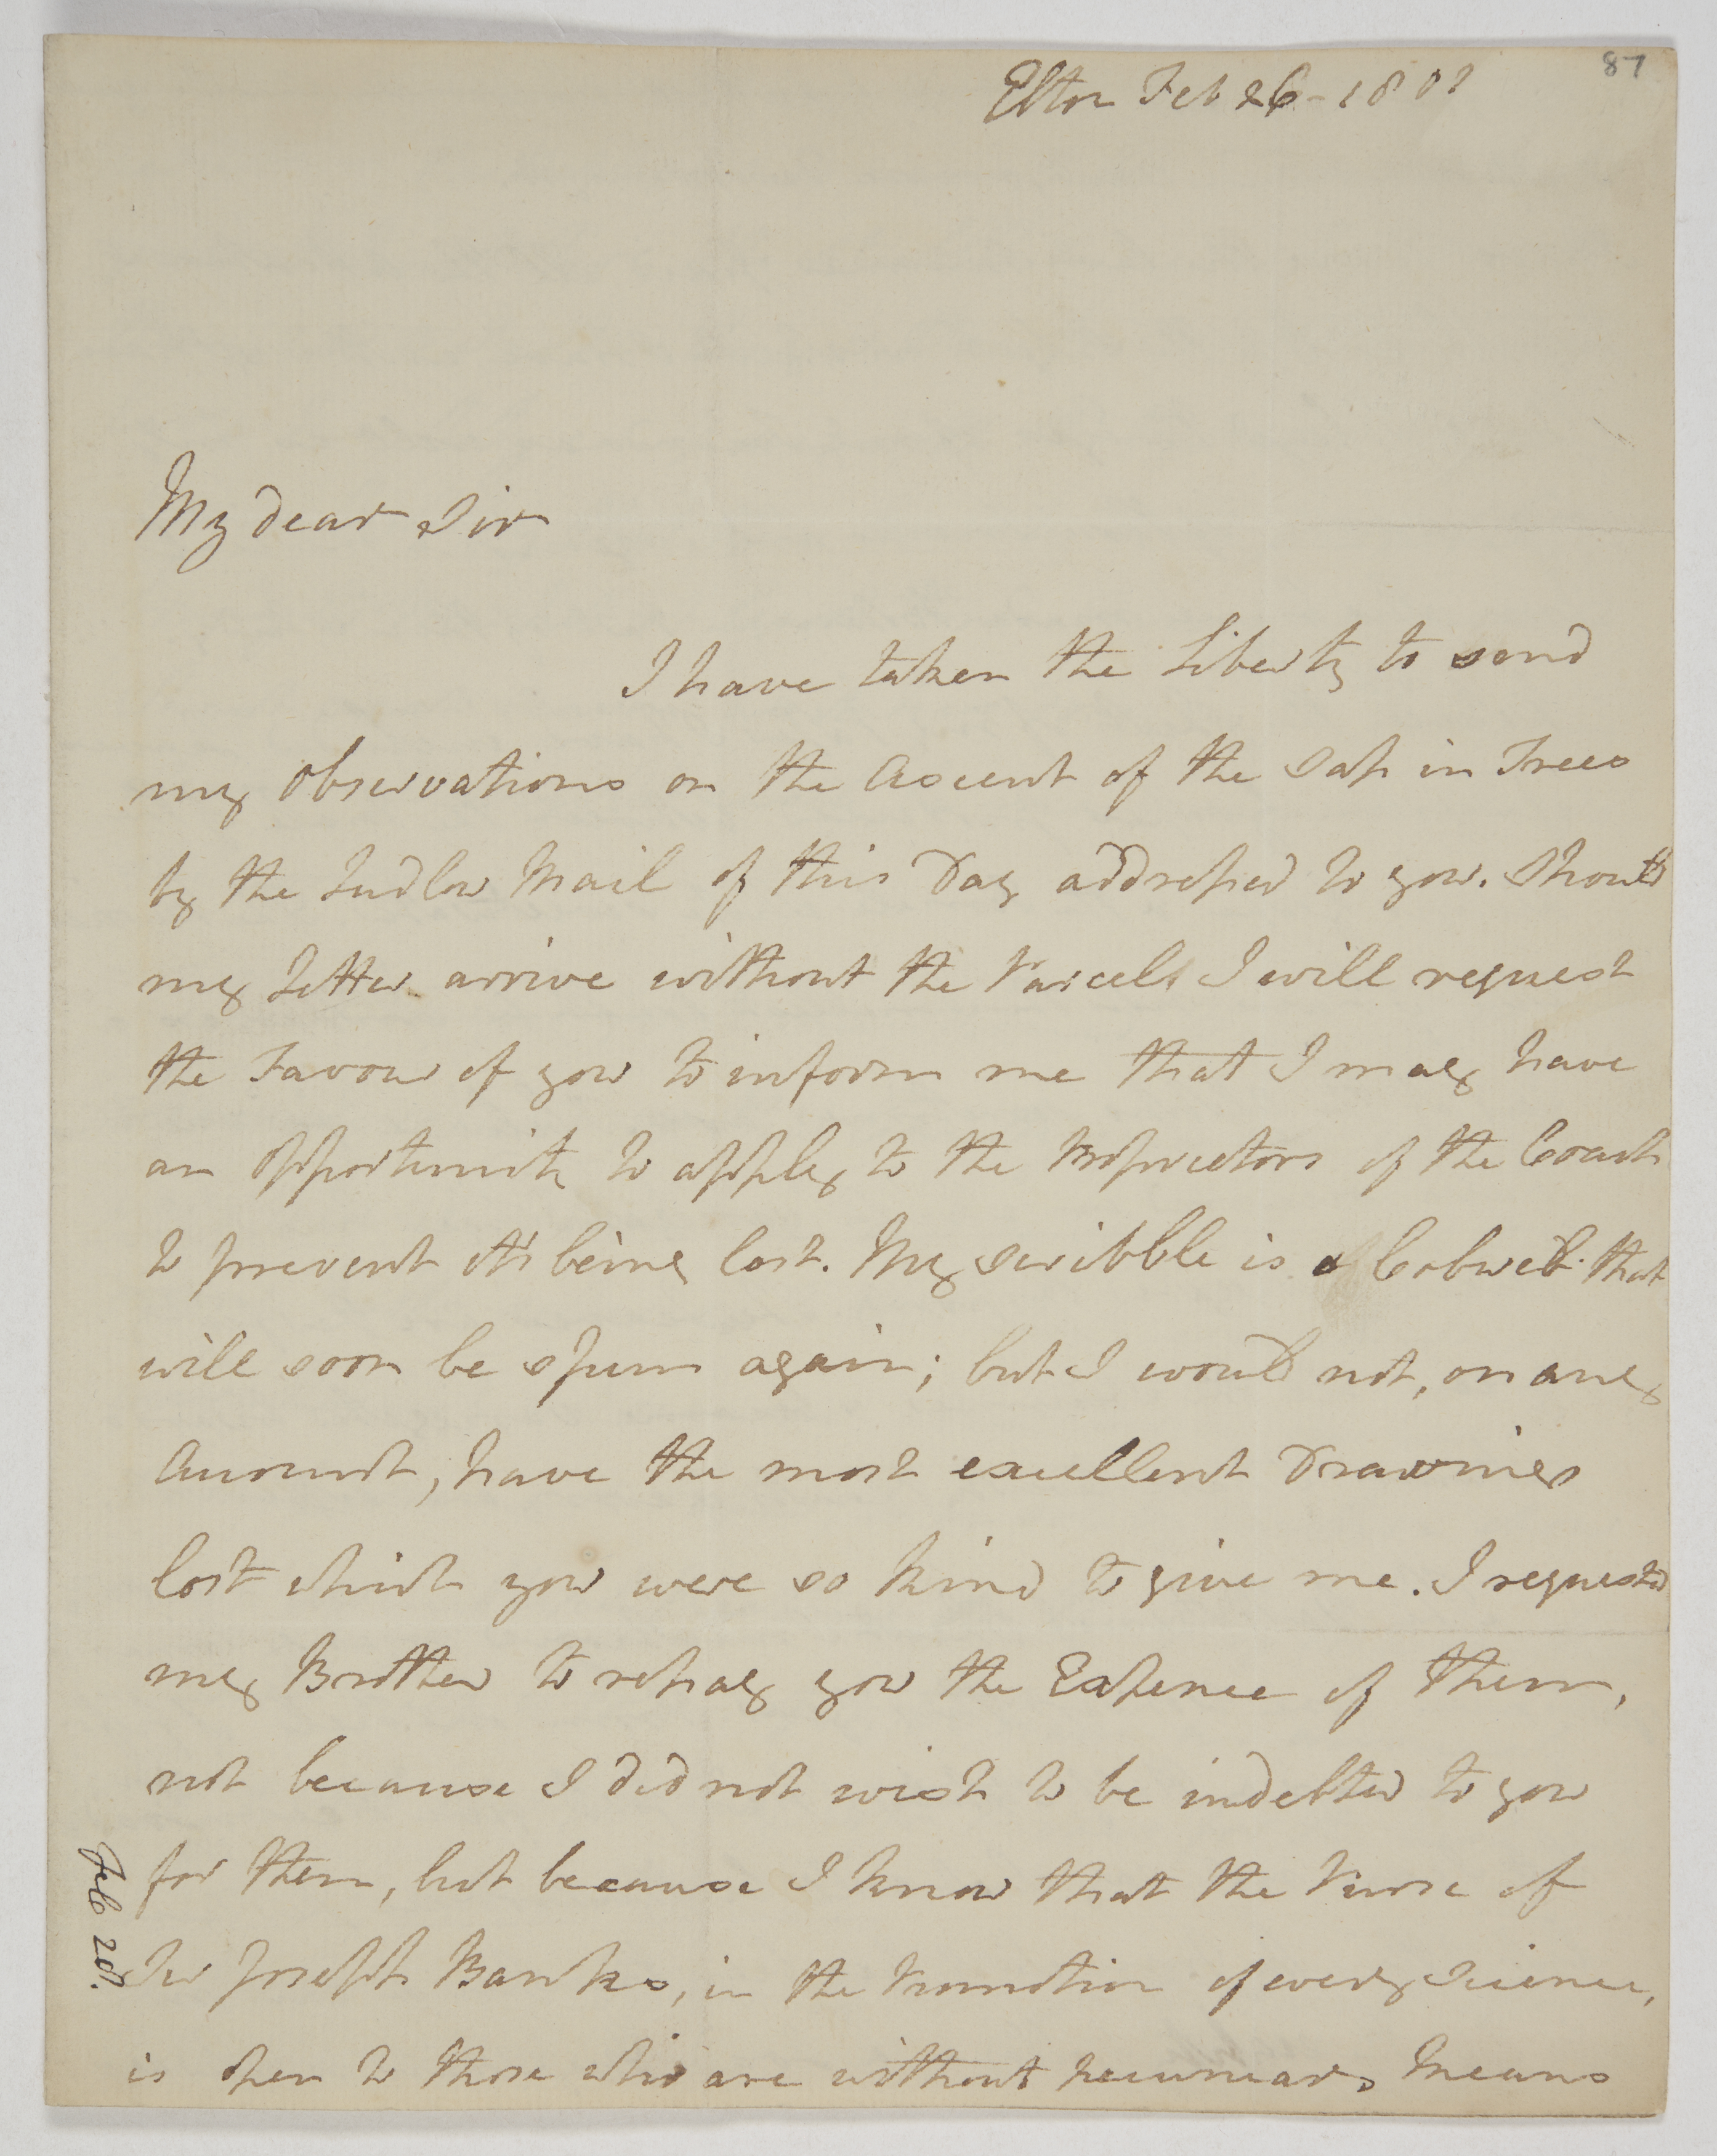 87
Elton Feb 26 - 1801
My dear Sir
I have taken the Liberty to send
my observations on the Ascent of the Sap in Trees
by the Ludlow Mail of this Day addressed to you. Should
my Letter arrive without the Parcel I will request
the Favour of you to inform me that I may have
an opportunity to apply to the Proprietors of the Coach
to prevent its being lost. My scribble is a Cobweb that
will soon be spun again; but I would not, on any
Account, have the most excellent Drawings
lost which you were so kind to give me. I requested
my Brother to repay you the Expence of them,
not because I did not wish to be indebted to you
for them, but because I know that the Purse of
Sir Joseph Banks, in the Promotion of every Science,
is open to those who are without pecuniary Means
Feb 28.